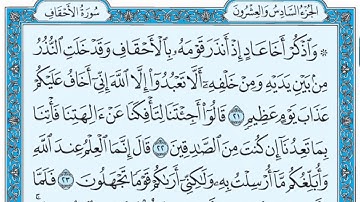 سُورَةُ الأَحْقَافِ الجُزْءُ السَّادِسُ وَالعِشْرُونَ
۞ وَٱذْكُرْ أَخَا عَادٍ إِذْ أَنذَرَ قَوْمَهُۥ بِٱلْأَحْقَافِ وَقَدْ خَلَتِ ٱلنُّذُرُ
مِنۢ بَيْنِ يَدَيْهِ وَمِنْ خَلْفِهِۦٓ أَلَّا تَعْبُدُوٓا۟ إِلَّا ٱللَّهَ إِنِّىٓ أَخَافُ عَلَيْكُمْ
عَذَابَ يَوْمٍ عَظِيمٍ ٢١ قَالُوٓا۟ أَجِئْتَنَا لِتَأْفِكَنَا عَنْ ءَالِهَتِنَا فَأْتِنَا
بِمَا تَعِدُنَآ إِن كُنتَ مِنَ ٱلصَّٰدِقِينَ ٢٢ قَالَ إِنَّمَا ٱلْعِلْمُ عِندَ ٱللَّهِ
وَأُبَلِّغُكُم مَّآ أُرْسِلْتُ بِهِۦ وَلَٰكِنِّىٓ أَرَىٰكُمْ قَوْمًا تَجْهَلُونَ ٢٣ فَلَمَّا